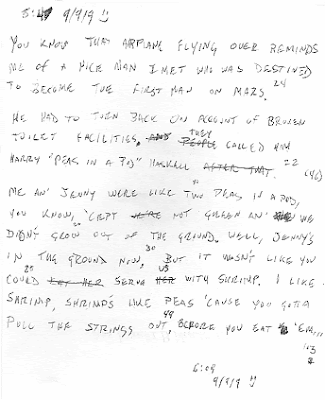 5:47 9/9/9
YOU KNOW THAT AIRPLANE FLYING OVER REMINDS
ME OF A NICE MAN I MET WHO WAS DESTINED
TO BECOME THE FIRST MAN ON MARS. 24
HE HAD TO TURN BACK ON ACCOUNT OF BROKEN
TOILET FACILITIES, AND THEY PEOPLE CALLED HIM
HARRY "PEAS IN A POD" HASKELL AFTER THAT. 22
(46)
ME AN' JENNY WERE LIKE TWO PEAS IN A POD,
YOU KNOW, 'CEPT WE'RE NOT GREEN AN' WE
DIDN'T GROW OUT OF THE GROUND. WELL, JENNY'S
IN THE GROUND NOW, BUT IT WASN'T LIKE YOU
COULD EAT HER SERVE US HER WITH SHRIMP. I LIKE
SHRIMP, SHRIMP'S LIKE PEAS 'CAUSE YOU GOTTA
PULL THE STRINGS OUT, BEFORE YOU EAT 'EM...
103
6:09
9/9/9